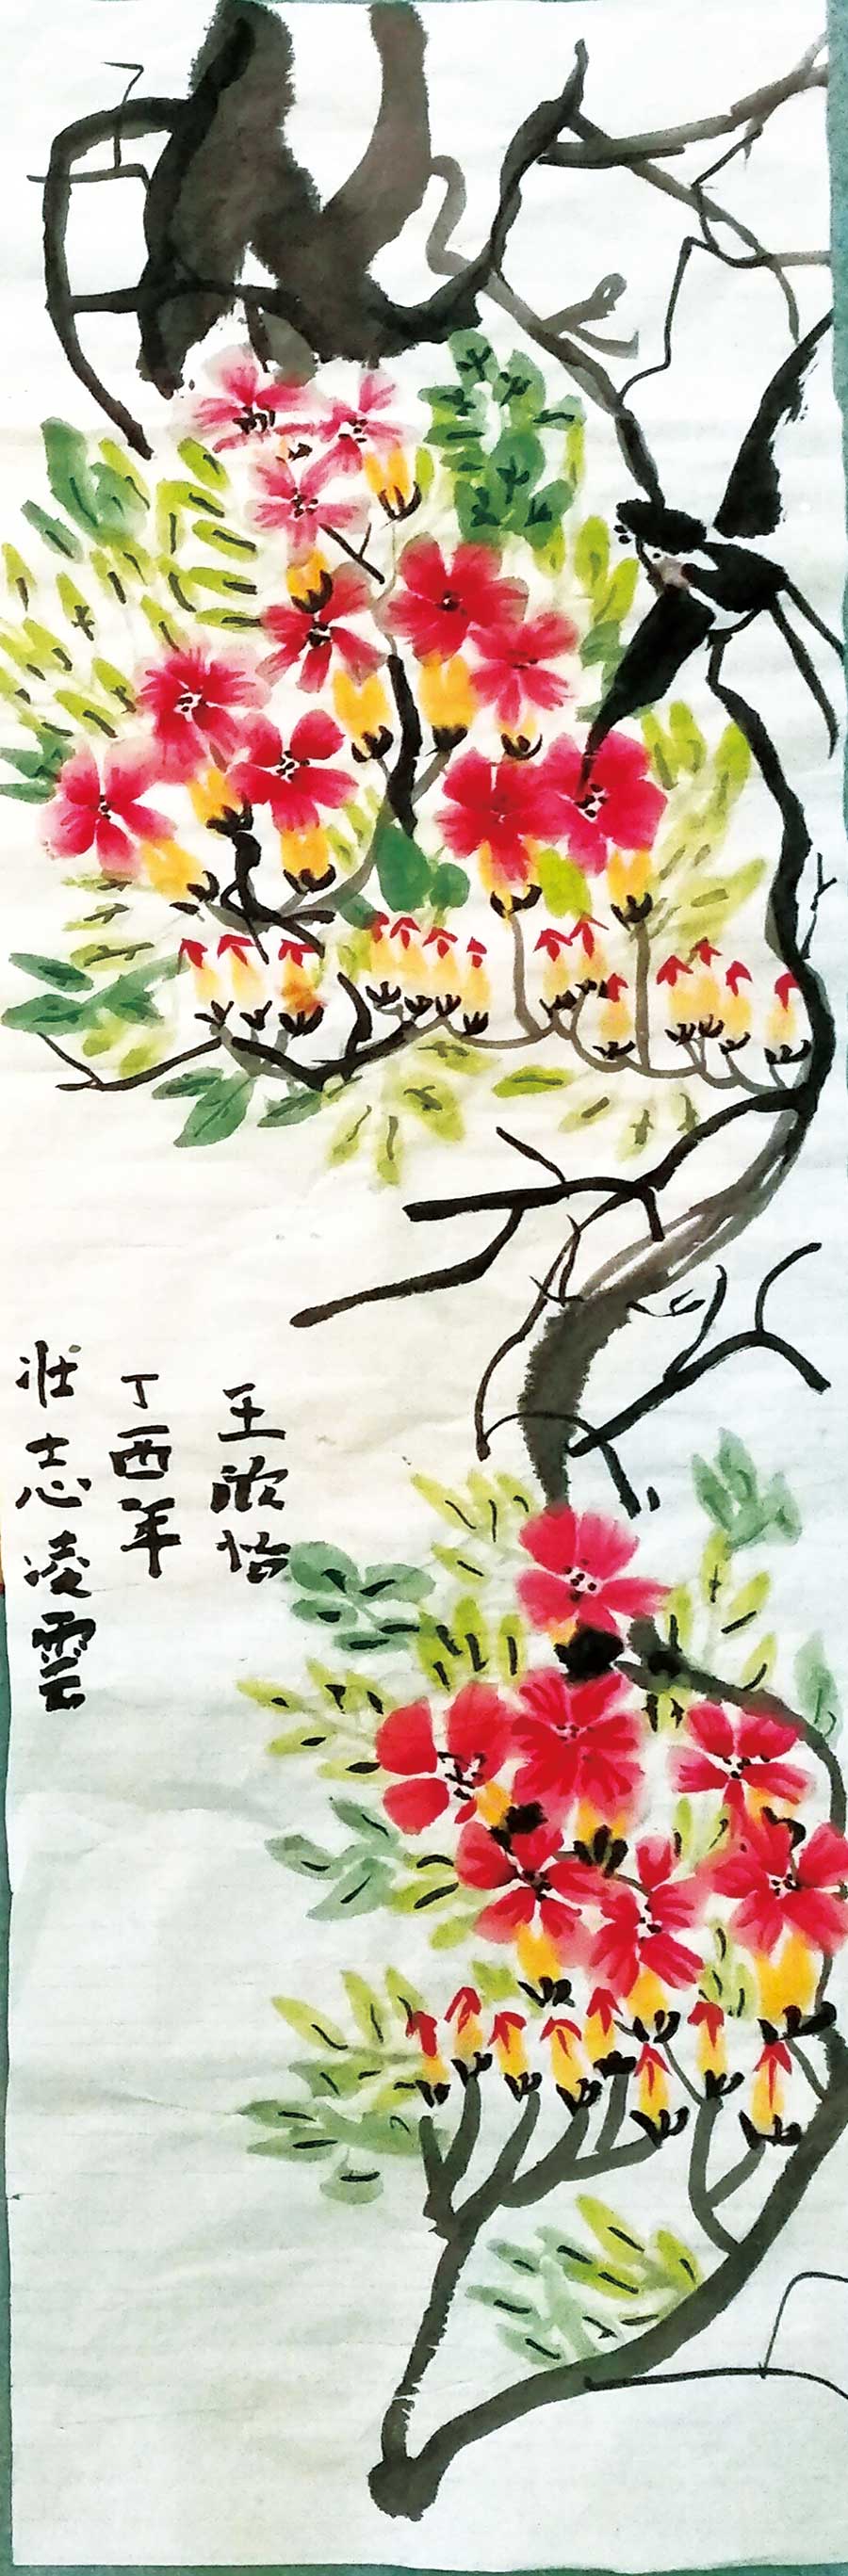 壮志凌雲
丁酉年
王欣怡